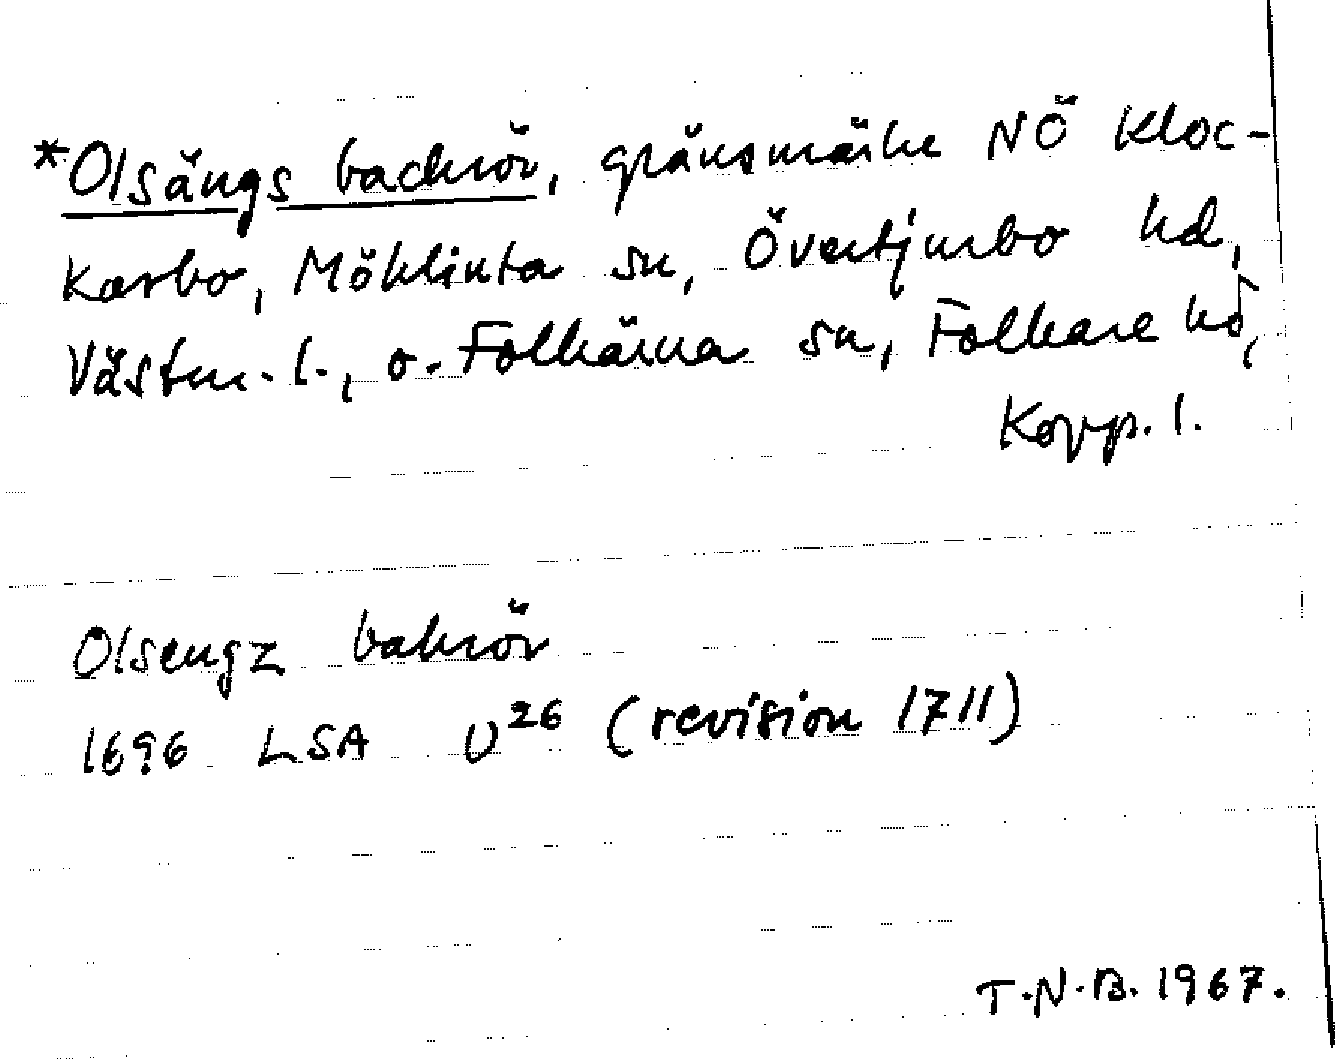 *Olsängs backrör, gränsmärke NÖ Kloc-
karbo, Möklinta sn, Övertjurbo hd,
Västm. l., o. Folkärna sn, Folkare hd,
Kopp. l.
Olsengz bakrör
1696 LSA U26 (revision 1711)
T.N.B. 1967.